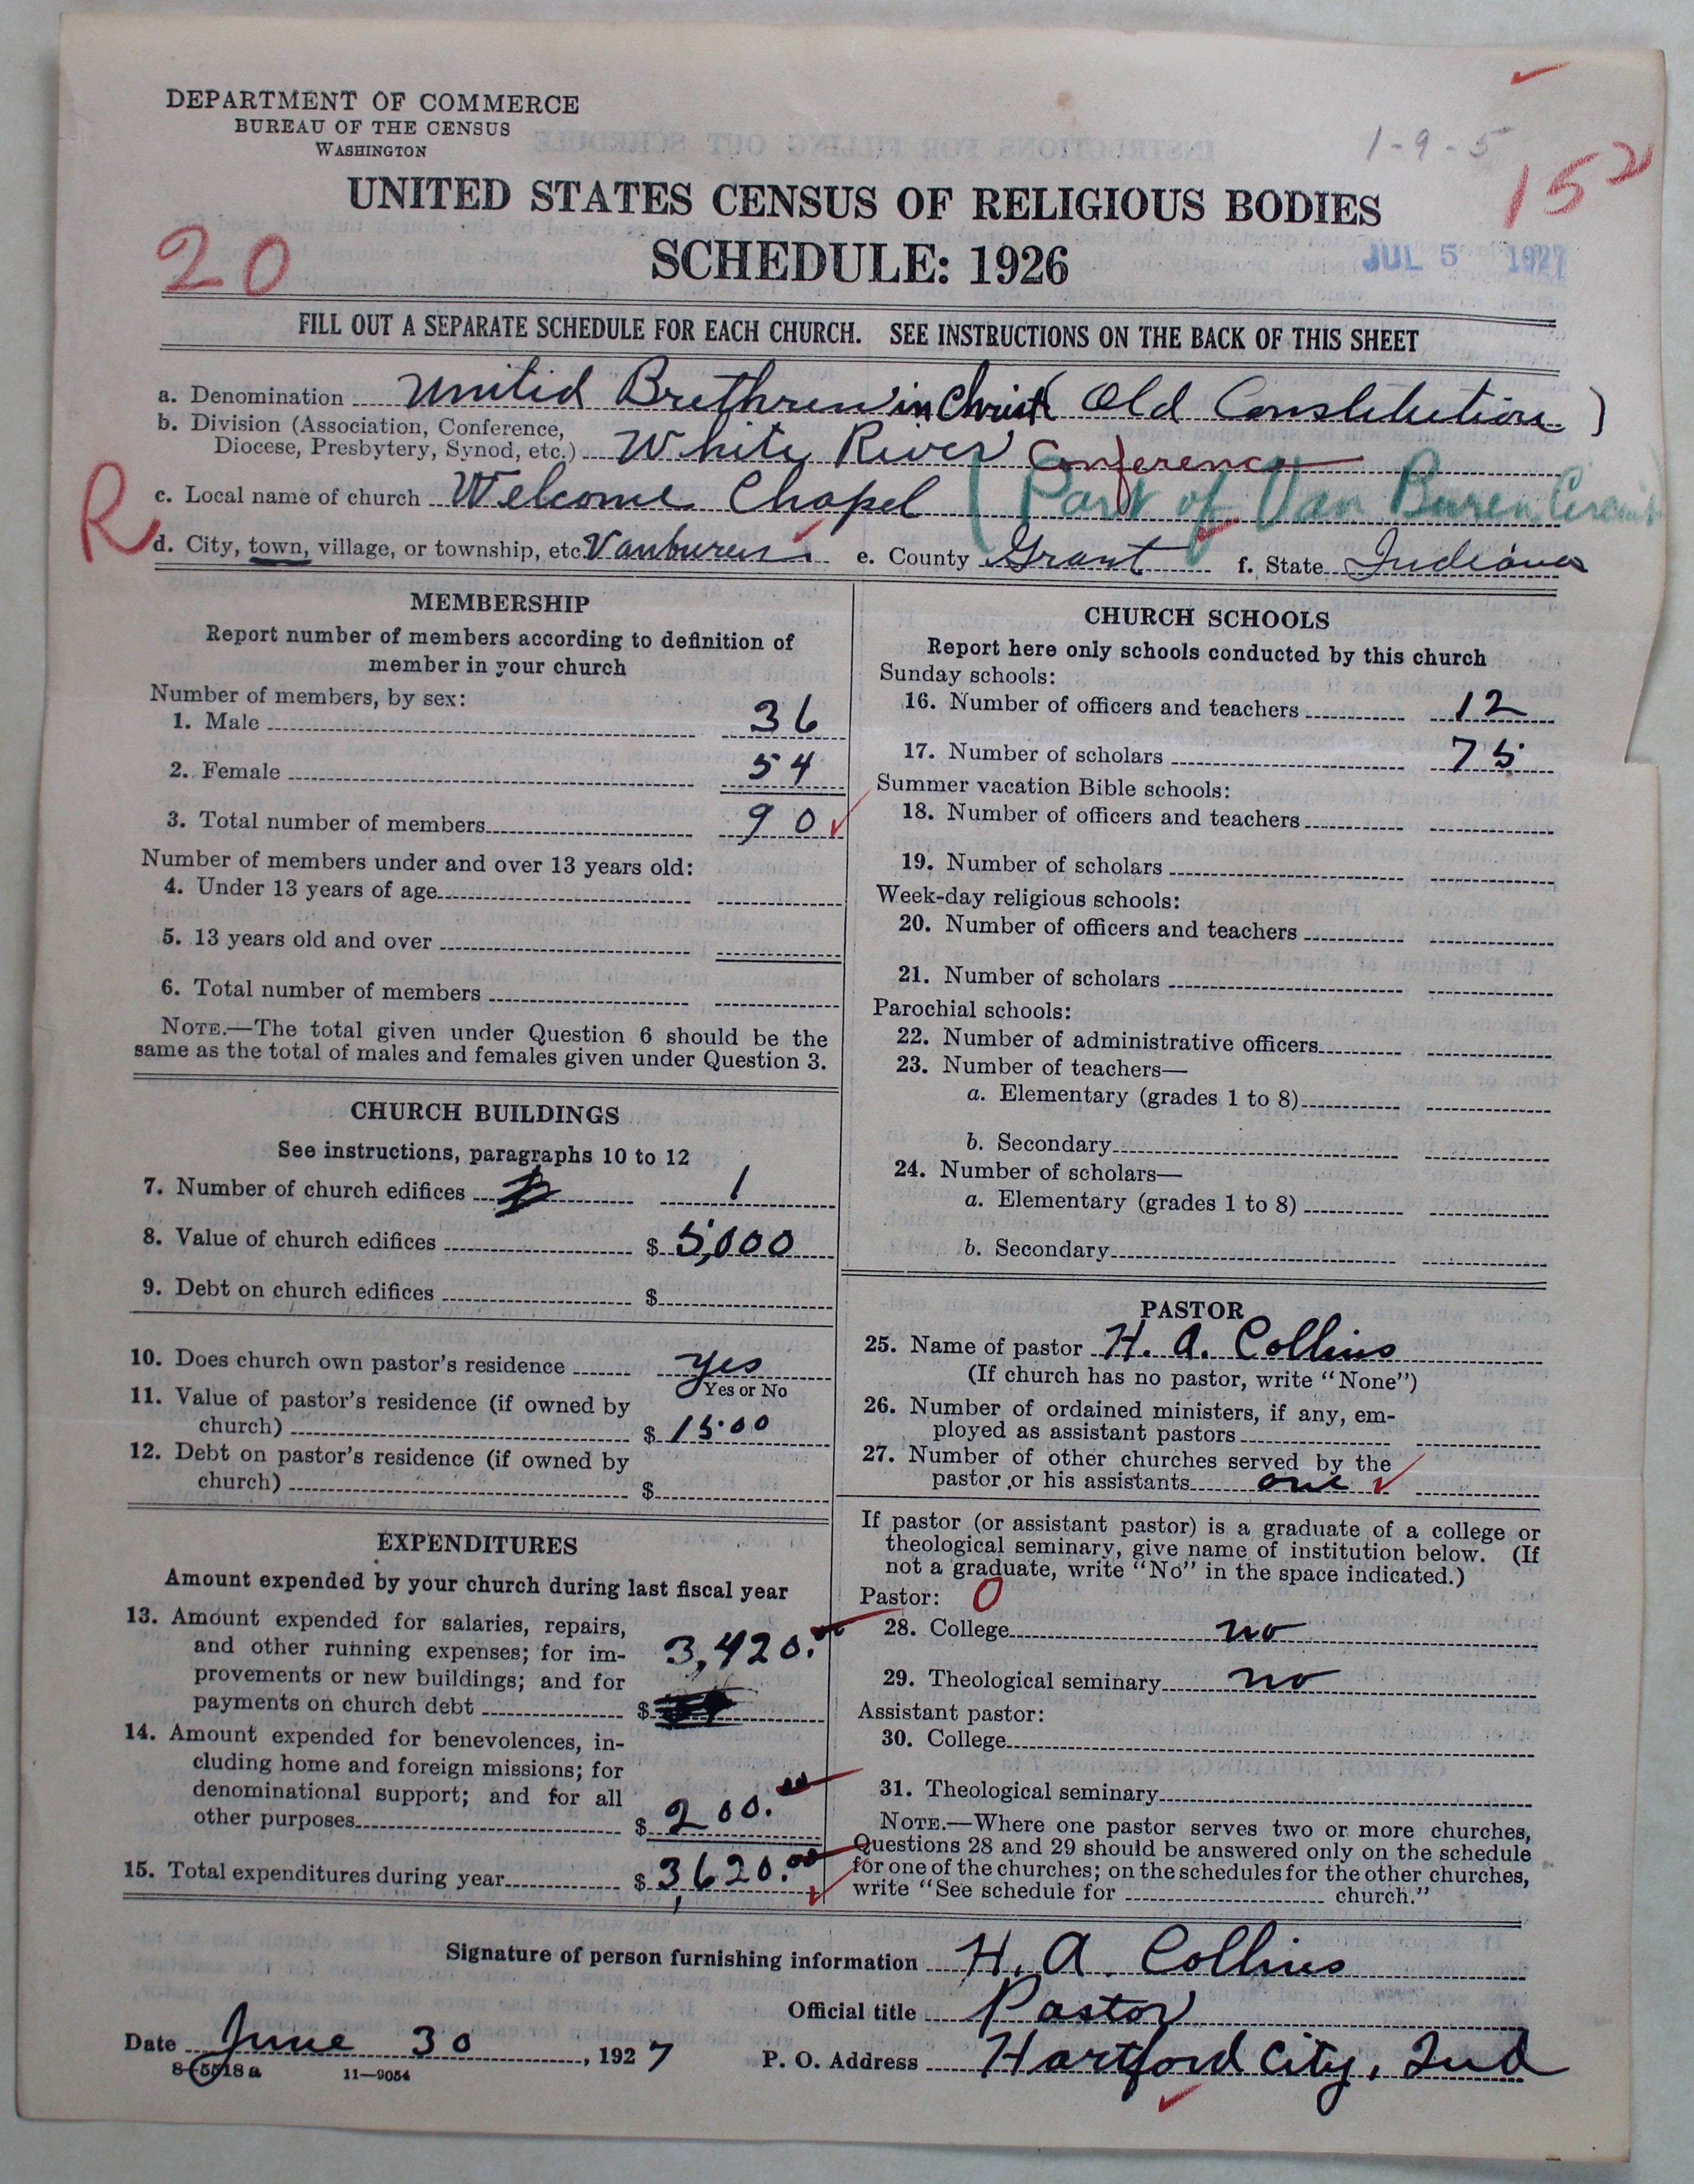 DEPARTMENT OF COMMERCE
BUREAU OF THE CENSUS
WASHINGTON
1-9-5
152
UNITED STATES CENSUS OF RELIGIOUS BODIES
20
SCHEDULE: 1926
JUL 5 1927
FILL OUT A SEPARATE SCHEDULE FOR EACH CHURCH. SEE INSTRUCTIONS ON THE BACK OF THIS SHEET
a. Denomination United Brethren in Christ (Old Constitution)
b. Division (Association, Conference,
Diocese, Presbytery, Synod, etc.) White River Conference
R
c. Local name of church Welcome Chapel (Part of Van Buren Circuit
d. City, town, village, or township, etc. Vanburen e. County Grant f. State Indiana
MEMBERSHIP
Report number of members according to definition of
member in your church
Number of members, by sex:
1. Male 36
2. Female 54
3. Total number of members 90
Number of members under and over 13 years old:
4. Under 13 years of age
5. 13 years old and over
6. Total number of members
NOTE.—The total given under Question 6 should be the
same as the total of males and females given under Question 3.
CHURCH BUILDINGS
See instructions, paragraphs 10 to 12
7. Number of church edifices 1
8. Value of church edifices $ 5,000
9. Debt on church edifices $
10. Does church own pastor's residence yes
Yes or No
11. Value of pastor's residence (if owned by
church) $ 1500
12. Debt on pastor's residence (if owned by
church) $
EXPENDITURES
Amount expended by your church during last fiscal year
13. Amount expended for salaries, repairs,
and other running expenses; for im-
provements or new buildings; and for
payments on church debt $ 3,420.00
14. Amount expended for benevolences, in-
cluding home and foreign missions; for
denominational support; and for all
other purposes $ 200.00
15. Total expenditures during year $ 3,620.00
CHURCH SCHOOLS
Report here only schools conducted by this church
Sunday schools:
16. Number of officers and teachers 12
17. Number of scholars 75
Summer vacation Bible schools:
18. Number of officers and teachers
19. Number of scholars
Week-day religious schools:
20. Number of officers and teachers
21. Number of scholars
Parochial schools:
22. Number of administrative officers
23. Number of teachers—
a. Elementary (grades 1 to 8)
b. Secondary
24. Number of scholars—
a. Elementary (grades 1 to 8)
b. Secondary
PASTOR
25. Name of pastor H. A. Collins
(If church has no pastor, write "None")
26. Number of ordained ministers, if any, em-
ployed as assistant pastors
27. Number of other churches served by the
pastor or his assistants one
If pastor (or assistant pastor) is a graduate of a college or
theological seminary, give name of institution below. (If
not a graduate, write "No" in the space indicated.)
Pastor: 0
28. College no
29. Theological seminary no
Assistant pastor:
30. College
31. Theological seminary
NOTE.—Where one pastor serves two or more churches,
Questions 28 and 29 should be answered only on the schedule
for one of the churches; on the schedules for the other churches,
write "See schedule for church."
Signature of person furnishing information H. A. Collins
Official title Pastor
Date June 30, 1927 P. O. Address Hartford City, Ind
8-5518a 11—9054